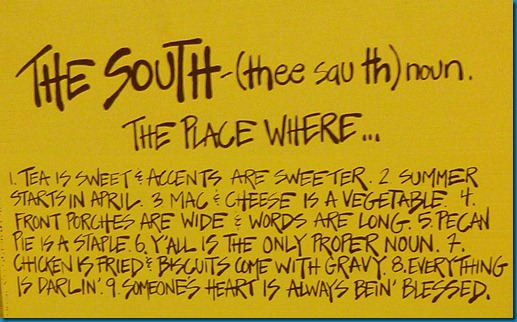 THE SOUTH - (thee sau th) noun.
THE PLACE WHERE...
1. TEA IS SWEET & ACCENTS ARE SWEETER. 2 SUMMER
STARTS IN APRIL. 3 MAC & CHEESE IS A VEGETABLE. 4.
FRONT PORCHES ARE WIDE & WORDS ARE LONG. 5. PECAN
PIE IS A STAPLE. 6. Y'ALL IS THE ONLY PROPER NOUN. 7.
CHICKEN IS FRIED & BISCUITS COME WITH GRAVY. 8. EVERYTHING
IS DARLIN'. 9. SOMEONE'S HEART IS ALWAYS BEIN' BLESSED.